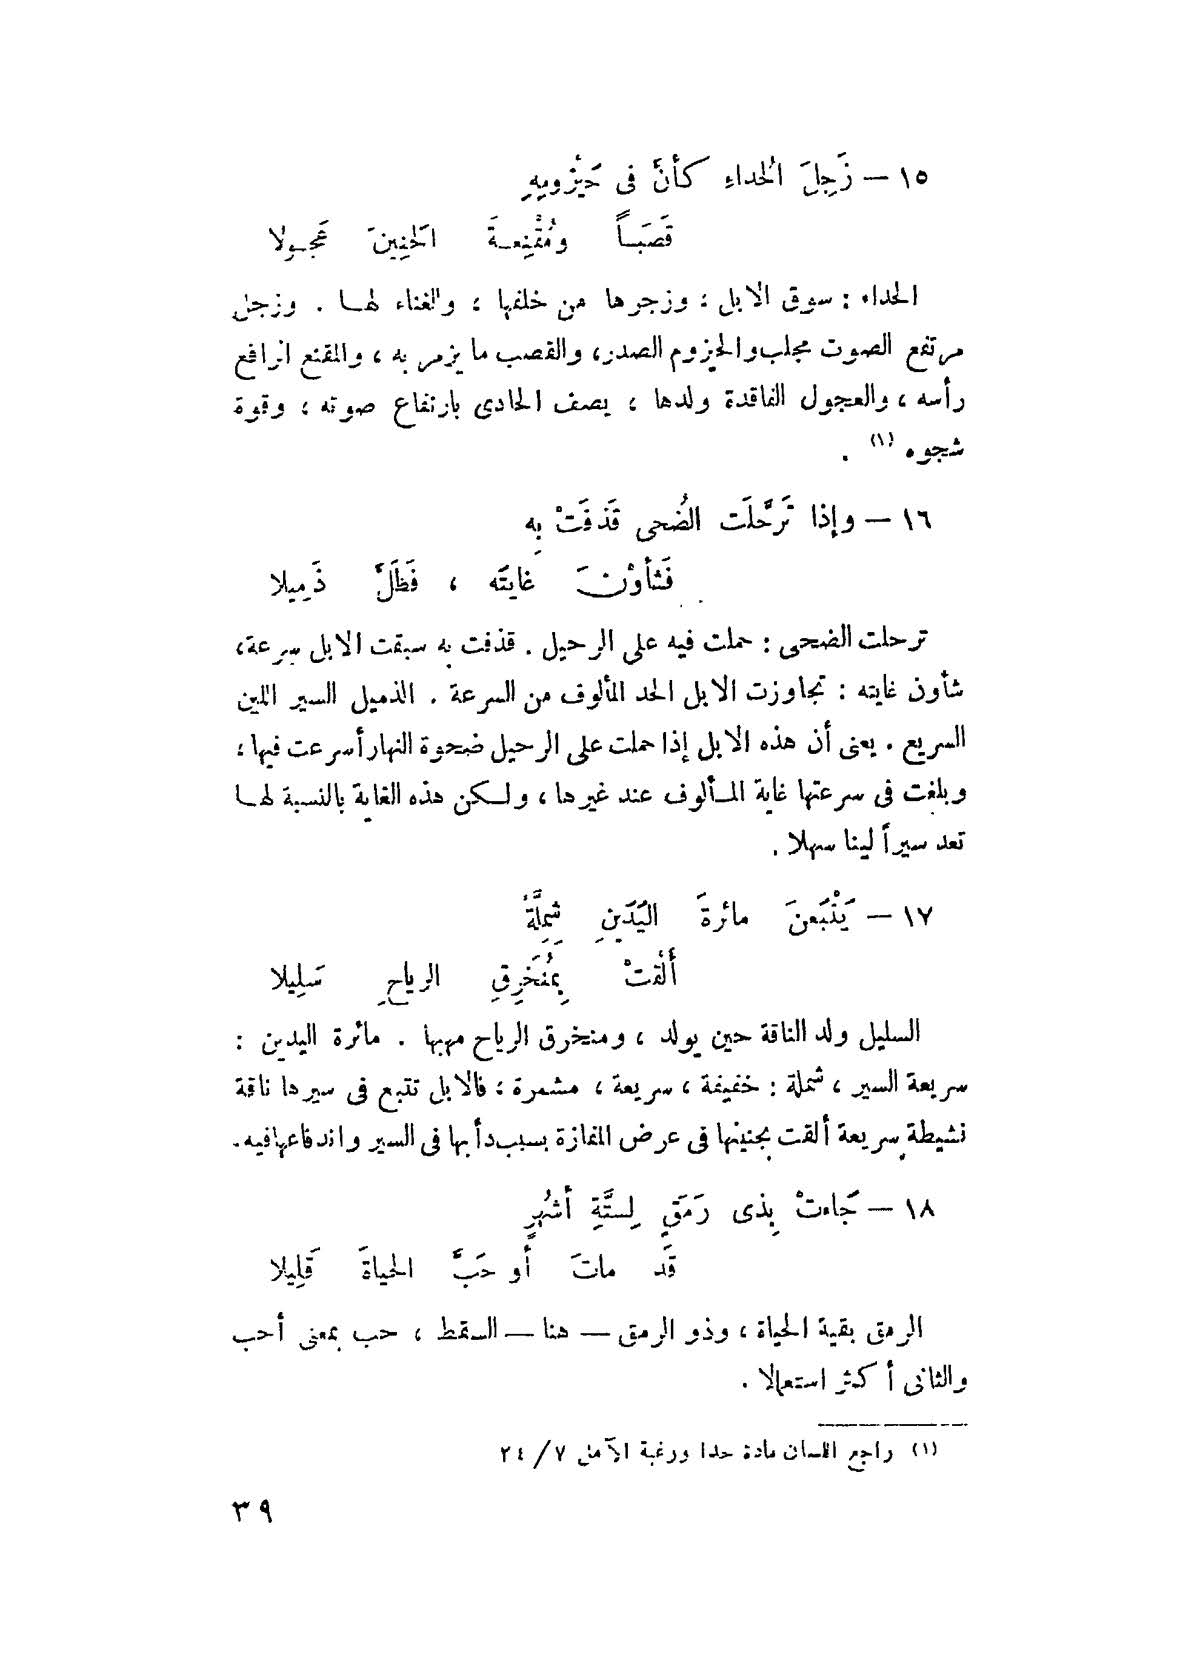 ١٥ — زَجِلَ الُحداءِ كأنَّ فى حَيْزومِهِ
قَصَباً ومُقْنِعةَ الحَنِينَ عَجولا
الحداء : سوق الابل ؛ وزجرها من خلفها ؛ والغناء لها . وزجل
مرتفع الصوت مجلب والحيزوم الصدر، والقصب ما يزمر به ، والمقنع الرافع
رأسه ، والعجول الفاقدة ولدها ، يصف الحادى بارتفاع صوته ؛ وقوة
شجوه (١) .
١٦ — وإذا تَرَحَّلَت الضُحى قَذفَتْ بِه
فَشأوْنَ غايتَه ، فَظَلَّ ذَمِيلا
ترحلت الضحى : حملت فيه على الرحيل . قذفت به سبقت الابل سرعة،
شأون غايته : تجاوزت الابل الحد المألوف من السرعة . الذميل السير اللين
السريع . يعنى أن هذه الابل إذا حملت على الرحيل ضحوة النهار أسرعت فيها ،
وبلغت فى سرعتها غاية المألوف عند غيرها ، ولكن هذه الغاية بالنسبة لها
تعد سيراً لينا سهلا .
١٧ — يَتْبَعنَ مائرةَ اليَدَينِ شِمِلَّةً
أَلْقتْ بِمُنخَرِقِ الرياحِ سَلِيلا
السليل ولد الناقة حين يولد ، ومنخرق الرياح مهبها . مائرة اليدين :
سريعة السير ، شملة : خفيفة ، سريعة ، مشمرة ؛ فالابل تتبع فى سيرها ناقة
نشيطة سريعة ألقت بجنينها فى عرض المفازة بسبب دأبها فى السير واندفاعها فيه.
١٨ — جَاءتْ بِذى رَمَقٍ لِستَّةِ أشهُرٍ
قَد ماتَ أو حَبَّ الحياةَ قَلِيلا
الرمق بقية الحياة ، وذو الرمق — هنا — السقط ، حب بمعنى أحب
والثانى أكثر استعمالا .
(١) راجع اللسان مادة حدا ورغبة الآمل ٧/ ٢٤
٣٩